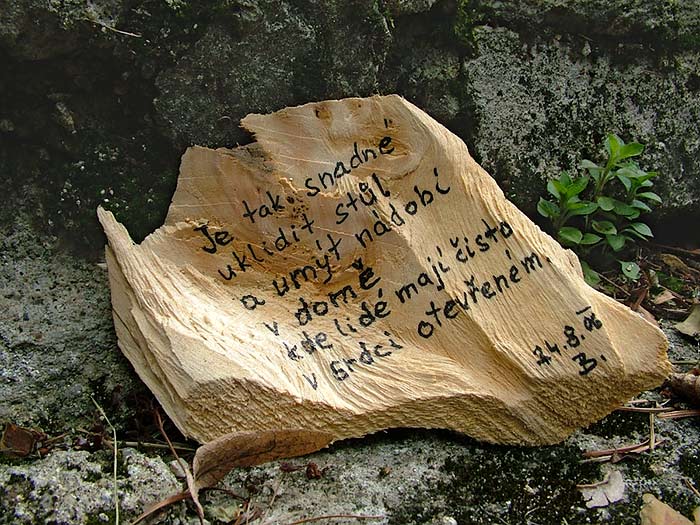 Je tak snadné
uklidit stůl
a umýt nádobí
v domě
kde lidé mají čisto
v srdci otevřeném.
24.8.06
B.